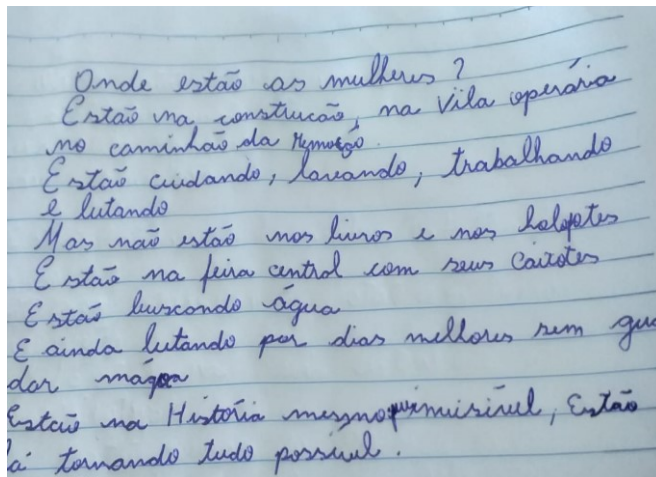 Onde estão as mulheres ?
Estão na construcão, na Vila operária
no caminhão da Remoção.
Estão cuidando, lavando, trabalhando
e lutando
Mas não estão nos livros e nos holofotes
Estão na feira central com seus Caixotes
Estão buscando água
E ainda lutando por dias melhores sem gua
dar mágoa
Estão na História mesmo invisível, Estão
lá tornando tudo possível.